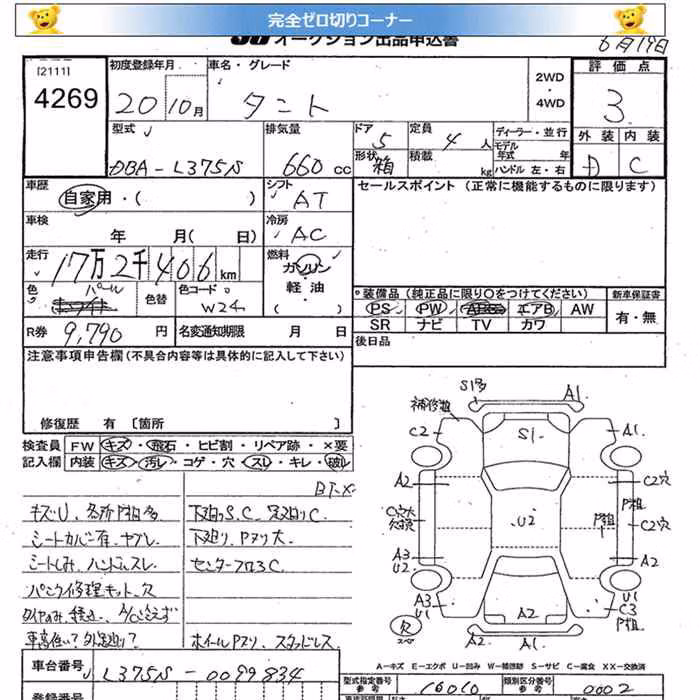 完全ゼロ切りコーナー
オークション出品申込書
6月19日
[2111]
4269
初度登録年月 20 10月
車名・グレード タント
2WD ・ 4WD
評価点 3
型式 DBA-L375S
排気量 660cc
ドア 5
形状 箱
定員 4人
積載 kg
ディーラー・並行
モデル年式 年
ハンドル 左・右
外装 内装
D C
車歴 自家用・( )
シフト AT
セールスポイント (正常に機能するものに限ります)
車検 年 月( 日)
冷房 AC
走行 17万2千406km
燃料 ガソリン・軽油 ( )
色 パール ホワイト
色替
色コード W24
装備品 (純正品に限り○をつけてください)
新車保証書
PS PW ABS エアB AW
有・無
SR ナビ TV カワ
R券 9,790円
名変通知期限 月 日
後日品
注意事項申告欄(不具合内容等は具体的に記入して下さい)
修復歴 有 [箇所 ]
検査員記入欄
FW キズ・飛石・ヒビ割・リペア跡・×要
内装 キズ・汚レ・コゲ・穴・スレ・キレ・破レ
キズU、各所P粗多
シートカバー有、ヤブレ
シートしみ、ハンドルスレ
パンク修理キット欠
下廻りS.C、足廻りC
下廻り、Pヌリ大
センターフロアC
ホイールPヌリ、スタッドレス
S1多
補修粗
A1
C2
S1
A1
A2
C2穴
C穴大
欠損
U2
P粗
P粗
C2穴
A3
U2
A2
A3
U1
U1
C3
P粗
欠
スペア
A2
A2
A1
A-キズ E-エクボ U-凹み W-補修跡 S-サビ C-腐食 XX-交換済
車台番号 L375S-0099834
型式指定番号 参考 16010
類別区分番号 参考 0002
登録番号